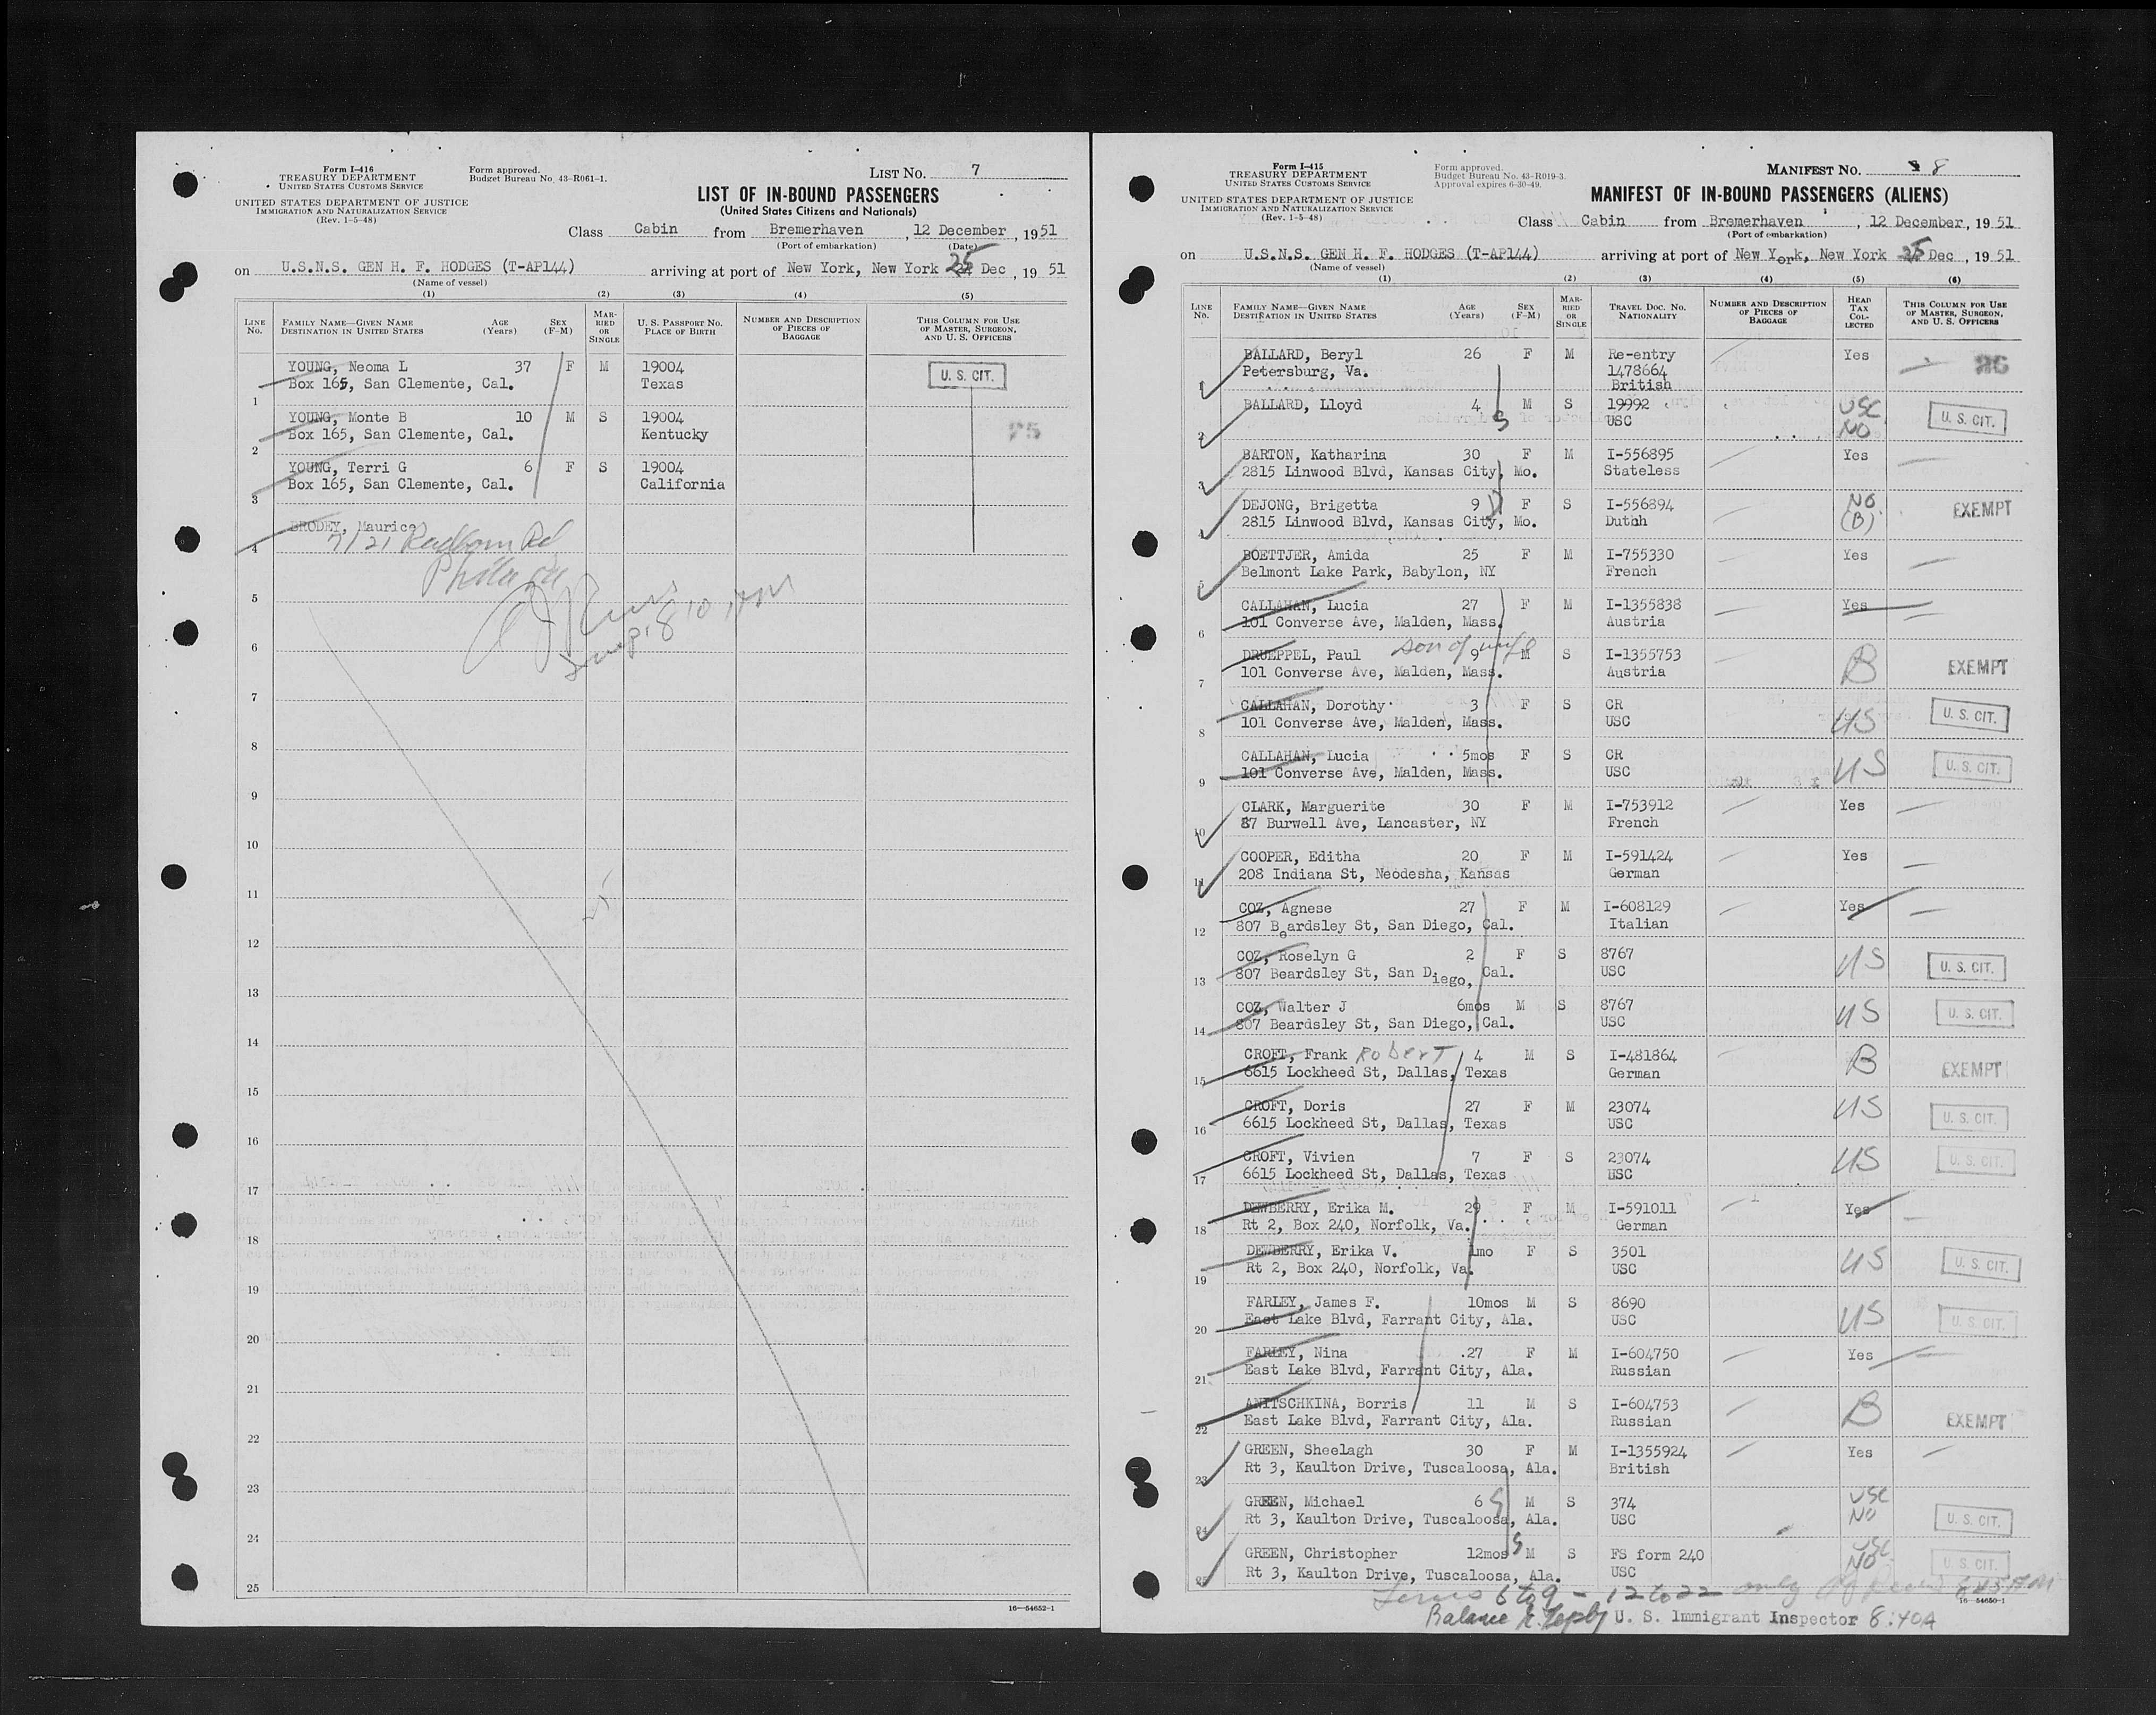 Form I-416
TREASURY DEPARTMENT
UNITED STATES CUSTOMS SERVICE
Form approved.
Budget Bureau No. 43-R061-1.
LIST NO. 7
UNITED STATES DEPARTMENT OF JUSTICE
IMMIGRATION AND NATURALIZATION SERVICE
(Rev. 1-5-48)
LIST OF IN-BOUND PASSENGERS
(United States Citizens and Nationals)
Class Cabin from Bremerhaven, 12 December, 1951
(Port of embarkation) (Date)
on U.S.N.S. GEN H. F. HODGES (T-AP144) arriving at port of New York, New York 25 Dec, 1951
(Name of vessel)
(1) (2) (3) (4) (5)
LINE No. FAMILY NAME—GIVEN NAME DESTINATION IN UNITED STATES AGE (Years) SEX (F-M) MARRIED OR SINGLE U. S. PASSPORT NO. PLACE OF BIRTH NUMBER AND DESCRIPTION OF PIECES OF BAGGAGE THIS COLUMN FOR USE OF MASTER, SURGEON, AND U. S. OFFICERS
YOUNG, Neoma L 37 F M 19004 U. S. CIT.
Box 165, San Clemente, Cal. Texas
1
YOUNG, Monte B 10 M S 19004
Box 165, San Clemente, Cal. Kentucky 75
2
YOUNG, Terri G 6 F S 19004
Box 165, San Clemente, Cal. California
3
BRODEY, Maurice
4
Phila
5
6
7
8
9
10
11
12
13
14
15
16
17
18
19
20
21
22
23
24
25
16—54652-1
Form I-415
TREASURY DEPARTMENT
UNITED STATES CUSTOMS SERVICE
Form approved.
Budget Bureau No. 43-R019-3.
Approval expires 6-30-49.
MANIFEST NO. 8
UNITED STATES DEPARTMENT OF JUSTICE
IMMIGRATION AND NATURALIZATION SERVICE
(Rev. 1-5-48)
MANIFEST OF IN-BOUND PASSENGERS (ALIENS)
Class Cabin from Bremerhaven, 12 December, 1951
(Port of embarkation)
on U.S.N.S. GEN H. F. HODGES (T-AP144) arriving at port of New York, New York 25 Dec, 1951
(Name of vessel)
(1) (2) (3) (4) (5) (6)
LINE No. FAMILY NAME—GIVEN NAME DESTINATION IN UNITED STATES AGE (Years) SEX (F-M) MARRIED OR SINGLE TRAVEL DOC. NO. NATIONALITY NUMBER AND DESCRIPTION OF PIECES OF BAGGAGE HEAD TAX COLLECTED THIS COLUMN FOR USE OF MASTER, SURGEON, AND U. S. OFFICERS
BALLARD, Beryl 26 F M Re-entry Yes
Petersburg, Va. 1478664
1 British
BALLARD, Lloyd 4 M S 19992 USC U. S. CIT.
2 USC NO
BARTON, Katharina 30 F M I-556895 Yes
3 2815 Linwood Blvd, Kansas City, Mo. Stateless
DEJONG, Brigetta 9 F S I-556894 NO EXEMPT
4 2815 Linwood Blvd, Kansas City, Mo. Dutch (B)
BOETTJER, Amida 25 F M I-755330 Yes
5 Belmont Lake Park, Babylon, NY French
CALLAHAN, Lucia 27 F M I-1355838 Yes
6 101 Converse Ave, Malden, Mass. Austria
DRUEPPEL, Paul son of wife 9 M S I-1355753 B EXEMPT
7 101 Converse Ave, Malden, Mass. Austria
CALLAHAN, Dorothy 3 F S CR US U. S. CIT.
8 101 Converse Ave, Malden, Mass. USC
CALLAHAN, Lucia 5mos F S CR US U. S. CIT.
9 101 Converse Ave, Malden, Mass. USC
CLARK, Marguerite 30 F M I-753912 Yes
10 87 Burwell Ave, Lancaster, NY French
COOPER, Editha 20 F M I-591424 Yes
11 208 Indiana St, Neodesha, Kansas German
COZ, Agnese 27 F M I-608129 Yes
12 807 Beardsley St, San Diego, Cal. Italian
COZ, Roselyn G 2 F S 8767 US U. S. CIT.
13 807 Beardsley St, San Diego, Cal. USC
COZ, Walter J 6mos M S 8767 US U. S. CIT.
14 807 Beardsley St, San Diego, Cal. USC
CROFT, Frank Robert 4 M S I-481864 B EXEMPT
15 6615 Lockheed St, Dallas, Texas German
CROFT, Doris 27 F M 23074 US U. S. CIT.
16 6615 Lockheed St, Dallas, Texas USC
CROFT, Vivien 7 F S 23074 US U. S. CIT.
17 6615 Lockheed St, Dallas, Texas USC
DEWBERRY, Erika M. 29 F M I-591011 Yes
18 Rt 2, Box 240, Norfolk, Va. German
DEWBERRY, Erika V. 1mo F S 3501 US U. S. CIT.
19 Rt 2, Box 240, Norfolk, Va. USC
FARLEY, James F. 10mos M S 8690 US U. S. CIT.
20 East Lake Blvd, Farrant City, Ala. USC
FARLEY, Nina 27 F M I-604750 Yes
21 East Lake Blvd, Farrant City, Ala. Russian
ANITSCHKINA, Borris 11 M S I-604753 B EXEMPT
22 East Lake Blvd, Farrant City, Ala. Russian
GREEN, Sheelagh 30 F M I-1355924 Yes
23 Rt 3, Kaulton Drive, Tuscaloosa, Ala. British
GREEN, Michael 6 M S 374 USC U. S. CIT.
24 Rt 3, Kaulton Drive, Tuscaloosa, Ala. USC NO
GREEN, Christopher 12mos M S FS form 240 USC U. S. CIT.
25 Rt 3, Kaulton Drive, Tuscaloosa, Ala. USC NO
6 to 9 - 12 to 22 only
16—54650-1
Balance U. S. Immigrant Inspector 8:40A